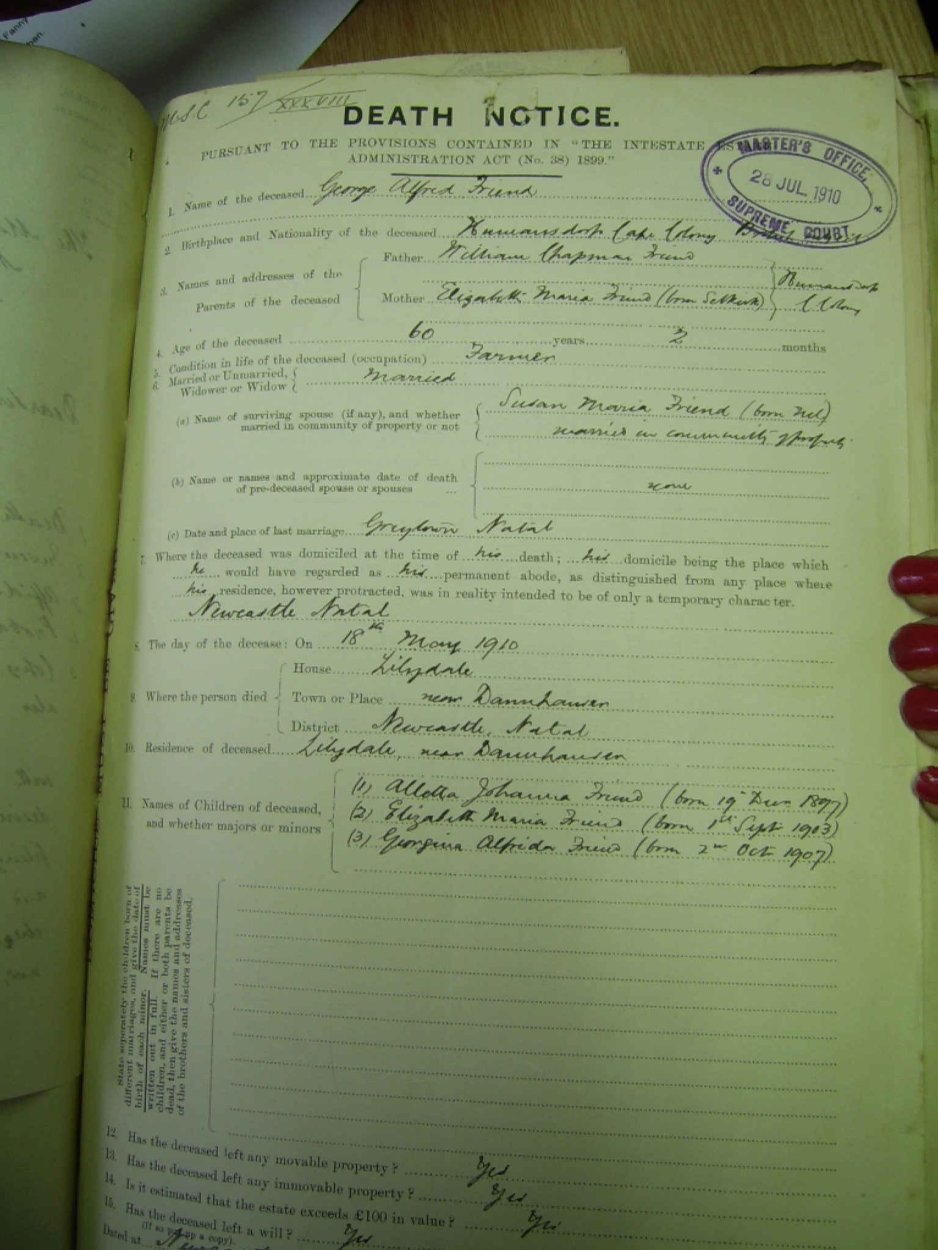 Fanny
MSC 157/XXXVIII
DEATH NOTICE.
PURSUANT TO THE PROVISIONS CONTAINED IN "THE INTESTATE ES
ADMINISTRATION ACT (No. 38) 1899."
MASTER'S OFFICE
28 JUL 1910
SUPREME COURT
1. Name of the deceased George Alfred Friend
2. Birthplace and Nationality of the deceased Humansdorp Cape Colony
3. Names and addresses of the Parents of the deceased
Father William Chapman Friend
Mother Elizabeth Maria Friend (born Selkirk)
Humansdorp
C Colony
4. Age of the deceased 60 years 2 months
5. Condition in life of the deceased (occupation) Farmer
6. Married or Unmarried, Widower or Widow married
(a) Name of surviving spouse (if any), and whether married in community of property or not
Susan Maria Friend (born Nel)
married in community of property
(b) Name or names and approximate date of death of pre-deceased spouse or spouses ... none
(c) Date and place of last marriage Greytown Natal
7. Where the deceased was domiciled at the time of his death; his domicile being the place which
he would have regarded as his permanent abode, as distinguished from any place where
his residence, however protracted, was in reality intended to be of only a temporary character.
Newcastle Natal
8. The day of the decease: On 18th May 1910
9. Where the person died
House Lilydale
Town or Place near Dannhauser
District Newcastle, Natal
10. Residence of deceased Lilydale, near Dannhauser
11. Names of Children of deceased, and whether majors or minors
(1) Alletta Johanna Friend (born 19th Decr 1897)
(2) Elizabeth Maria Friend (born 1st Sept 1903)
(3) Georgina Alfrida Friend (born 2nd Oct 1907)
State separately the children born of
different marriages, and give the date of
birth of each minor. Names must be
written out in full. If there are no
children, and either or both parents be
dead, then give the names and addresses
of the brothers and sisters of deceased.
12. Has the deceased left any movable property? Yes
13. Has the deceased left any immovable property? Yes
14. Is it estimated that the estate exceeds £100 in value? Yes
15. Has the deceased left a will? Yes
(If so a copy).
Dated at